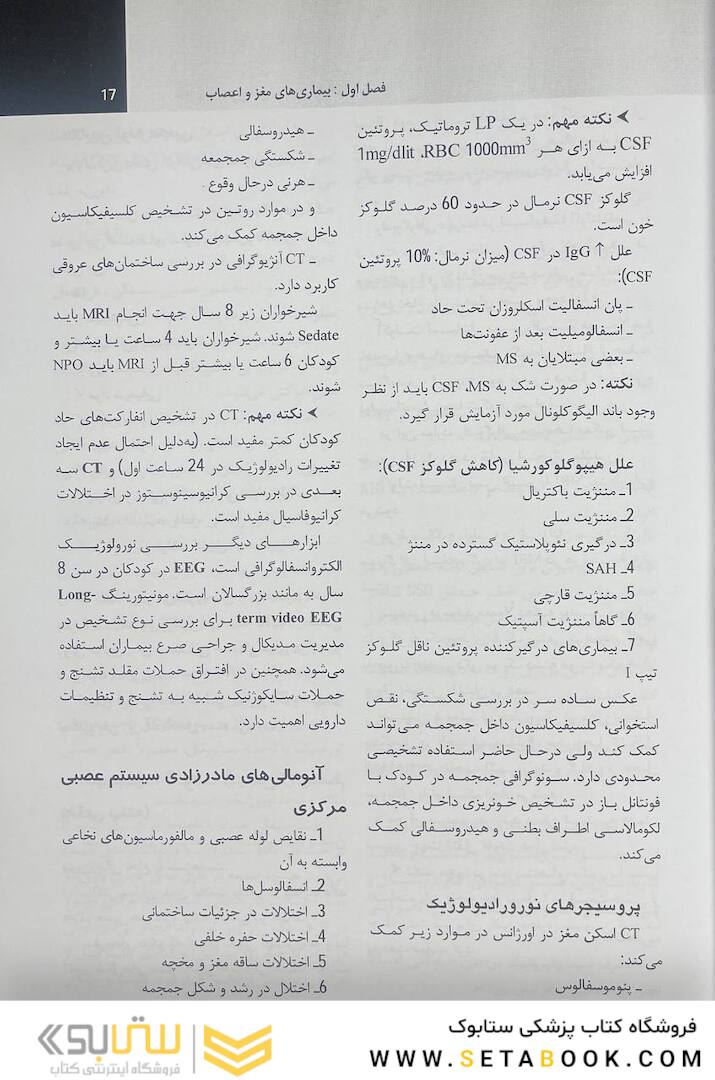 17
فصل اول : بیماری‌های مغز و اعصاب
➤ نکته مهم: در یک LP تروماتیک، پروتئین
CSF به ازای هر 1mg/dlit ،RBC 1000mm³
افزایش می‌یابد.
گلوکز CSF نرمال در حدود 60 درصد گلوکز
خون است.
علل ↑ IgG در CSF (میزان نرمال: 10% پروتئین
CSF):
ـ پان انسفالیت اسکلروزان تحت حاد
ـ انسفالومیلیت بعد از عفونت‌ها
ـ بعضی مبتلایان به MS
نکته: در صورت شک به CSF ،MS باید از نظر
وجود باند الیگوکلونال مورد آزمایش قرار گیرد.
علل هیپوگلوکورشیا (کاهش گلوکز CSF):
1ـ مننژیت باکتریال
2ـ مننژیت سلی
3ـ درگیری نئوپلاستیک گسترده در مننژ
4ـ SAH
5ـ مننژیت قارچی
6ـ گاهاً مننژیت آسپتیک
7ـ بیماری‌های درگیرکننده پروتئین ناقل گلوکز
تیپ I
عکس ساده سر در بررسی شکستگی، نقص
استخوانی، کلسیفیکاسیون داخل جمجمه می‌تواند
کمک کند ولی درحال حاضر استفاده تشخیصی
محدودی دارد. سونوگرافی جمجمه در کودک با
فونتانل باز در تشخیص خونریزی داخل جمجمه،
لکومالاسی اطراف بطنی و هیدروسفالی کمک
می‌کند.
پروسیجرهای نورورادیولوژیک
CT اسکن مغز در اورژانس در موارد زیر کمک
می‌کند:
ـ پنوموسفالوس
ـ هیدروسفالی
ـ شکستگی جمجمعه
ـ هرنی درحال وقوع
و در موارد روتین در تشخیص کلسیفیکاسیون
داخل جمجمه کمک می‌کند.
ـ CT آنژیوگرافی در بررسی ساختمان‌های عروقی
کاربرد دارد.
شیرخواران زیر 8 سال جهت انجام MRI باید
Sedate شوند. شیرخواران باید 4 ساعت یا بیشتر و
کودکان 6 ساعت یا بیشتر قبل از MRI باید NPO
شوند.
➤ نکته مهم: CT در تشخیص انفارکت‌های حاد
کودکان کمتر مفید است. (به‌دلیل احتمال عدم ایجاد
تغییرات رادیولوژیک در 24 ساعت اول) و CT سه
بعدی در بررسی کرانیوسینوستوز در اختلالات
کرانیوفاسیال مفید است.
ابزارهای دیگر بررسی نورولوژیک
الکتروانسفالوگرافی است، EEG در کودکان در سن 8
سال به مانند بزرگسالان است. مونیتورینگ Long-
term video EEG برای بررسی نوع تشخیص در
مدیریت مدیکال و جراحی صرع بیماران استفاده
می‌شود. همچنین در افتراق حملات مقلد تشنج و
حملات سایکوژنیک شبیه به تشنج و تنظیمات
دارویی اهمیت دارد.
آنومالی‌های مادرزادی سیستم عصبی
مرکزی
1ـ نقایص لوله عصبی و مالفورماسیون‌های نخاعی
وابسته به آن
2ـ انسفالوسل‌ها
3ـ اختلالات در جزئیات ساختمانی
4ـ اختلالات حفره خلفی
5ـ اختلالات ساقه مغز و مخچه
6ـ اختلال در رشد و شکل جمجمه
فروشگاه کتاب پزشکی ستابوک
WWW.SETABOOK.COM
ستابوک
فروشگاه اینترنتی کتاب